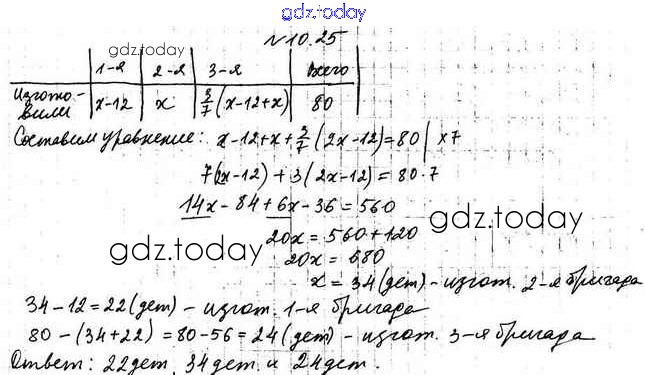 gdz.today
№10.25
gdz.today
1-я 2-я 3-я Всего
Изгото-вили x-12 x 3/7(x-12+x) 80
Составим уравнение: x-12+x+3/7(2x-12)=80 | x7
7(2x-12)+3(2x-12)=80·7
14x-84+6x-36=560
gdz.today
gdz.today
20x=560+120
20x=680
x=34(дет)-изгот. 2-я бригада
34-12=22(дет)-изгот. 1-я бригада
80-(34+22)=80-56=24(дет)-изгот. 3-я бригада
Ответ: 22дет, 34дет. и 24дет.